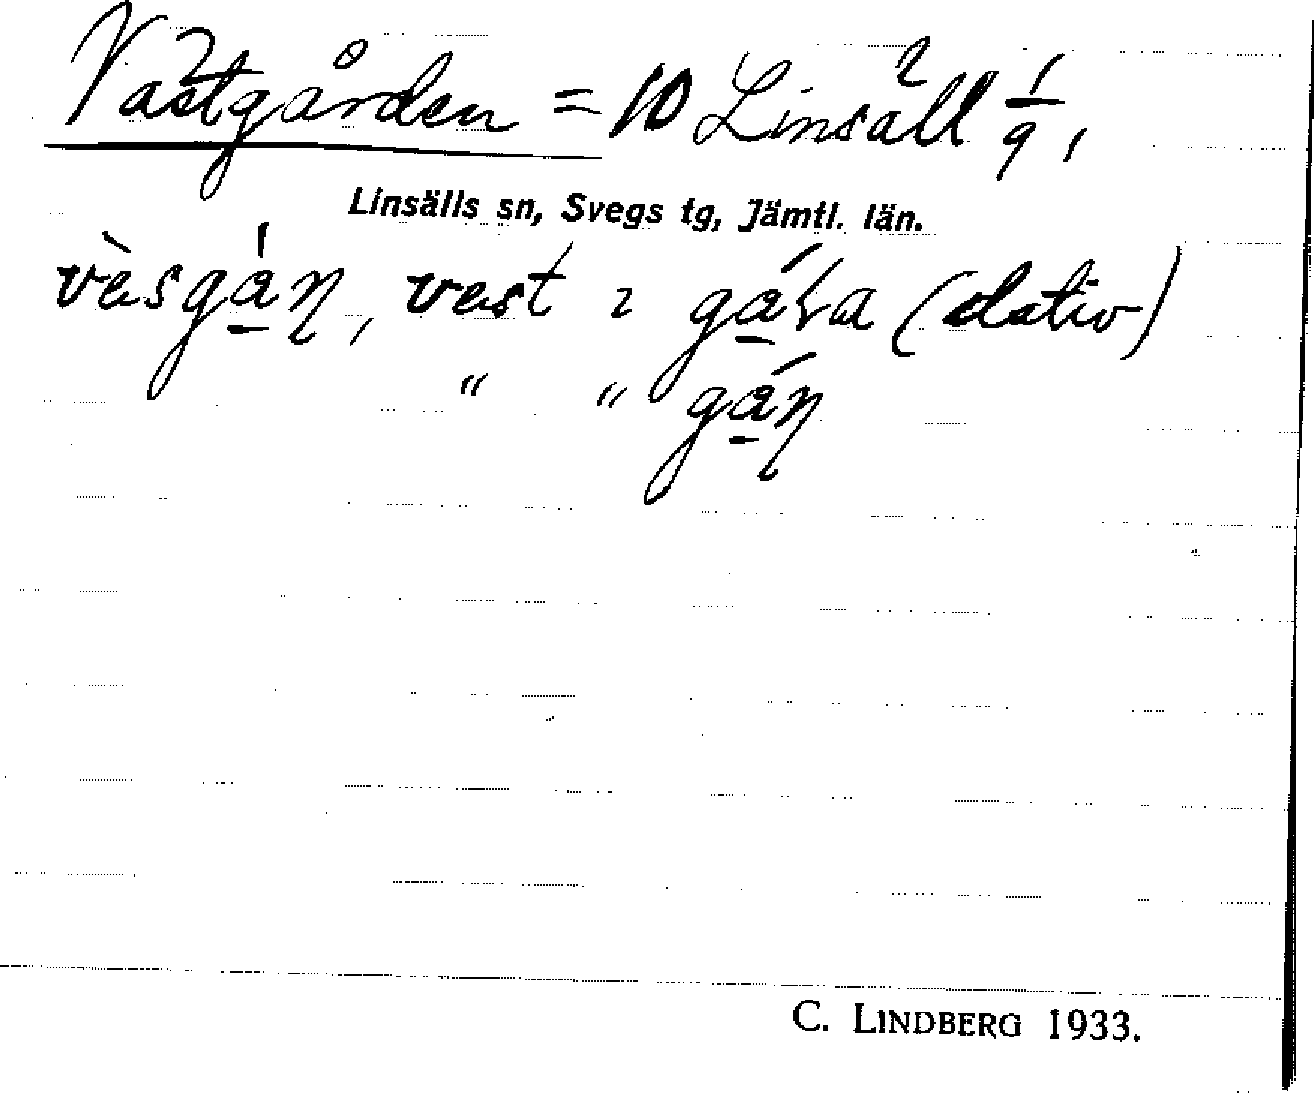 Västgården = 10 Linsäll 1/9,
Linsälls sn, Svegs tg, Jämtl. län.
vèsgá̱ɳ, vest ı gá̱ɽa (dativ)
" " gá̱ɳ
C. LINDBERG 1933.